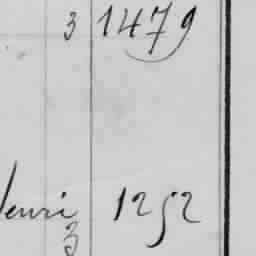 3 1479
Henri 1252
3